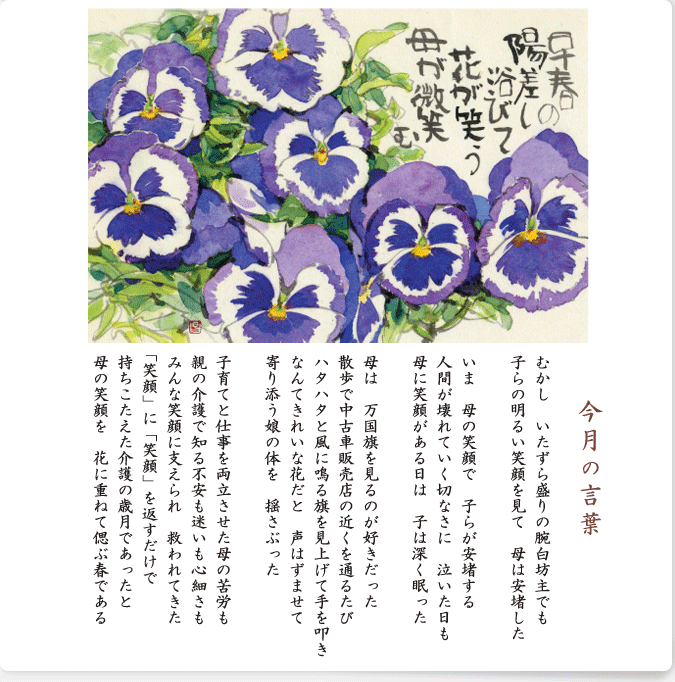 早春の
陽差し
浴びて
花が笑う
母が微笑
む
今月の言葉
むかし　いたずら盛りの腕白坊主でも
子らの明るい笑顔を見て　母は安堵した
いま　母の笑顔で　子らが安堵する
人間が壊れていく切なさに　泣いた日も
母に笑顔がある日は　子は深く眠った
母は　万国旗を見るのが好きだった
散歩で中古車販売店の近くを通るたび
ハタハタと風に鳴る旗を見上げて手を叩き
なんてきれいな花だと　声はずませて
寄り添う娘の体を　揺さぶった
子育てと仕事を両立させた母の苦労も
親の介護で知る不安も迷いも心細さも
みんな笑顔に支えられ　救われてきた
「笑顔」に「笑顔」を返すだけで
持ちこたえた介護の歳月であったと
母の笑顔を　花に重ねて偲ぶ春である